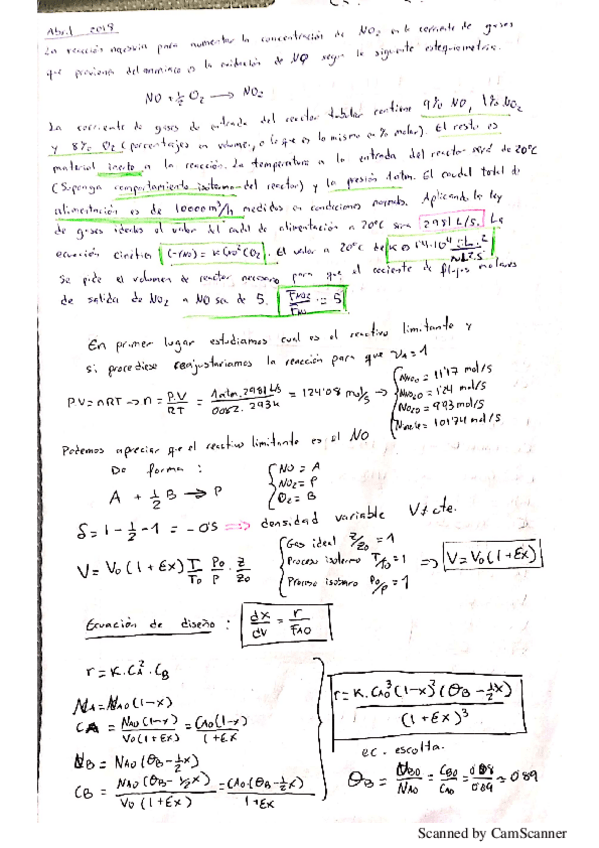 Abril 2018
La reacción necesaria para aumentar la concentración de NO2 en la corriente de gases
que proviene del amoniaco es la oxidación de NO según la siguiente estequiometría.
NO + ½ O2 → NO2
La corriente de gases de entrada del reactor tubular contiene 9% NO, 1% NO2
y 8% O2 (porcentajes en volumen, o lo que es lo mismo en % molar). El resto es
material inerte a la reacción. La temperatura a la entrada del reactor será de 20°C
(Suponga comportamiento isotermo del reactor) y la presión 1 atm. El caudal total de
alimentación es de 10000 m³/h medidos en condiciones normales. Aplicando la ley
de gases ideales el valor del caudal de alimentación a 20°C será 2981 L/s. La
ecuación cinética (-rNO) = K CNO² CO2. El valor a 20°C de K es 1'4·10⁴
Se pide el volumen de reactor necesario para que el cociente de flujos molares
de salida de NO2 a NO sea de 5. FNO2/FNO = 5
En primer lugar estudiamos cual es el reactivo limitante y
si procediese reajustaríamos la reacción para que νA = 1
P·V = nRT → n = P·V/RT = 1 atm·2981 L/s / 0'082·293K = 124'08 mol/s → { NNO0 = 11'17 mol/s
NNO20 = 1'24 mol/s
NO20 = 9'93 mol/s
= 101'74 mol/s
Podemos apreciar que el reactivo limitante es el NO
De forma: { NO = A
NO2 = P
O2 = B
A + ½ B → P
δ = 1 - ½ - 1 = -0'5 ⇒ densidad variable V ≠ cte.
V = V0 (1+εx) T/T0 · P0/P · Z/Z0 { Gas ideal Z/Z0 = 1
Proceso isotermo T/T0 = 1
Proceso isobaro P0/P = 1
⇒ V = V0 (1+εx)
Ecuación de diseño: dx/dV = r/FA0
r = K·CA²·CB
NA = NA0 (1-x)
CA = NA0 (1-x) / V0 (1+εx) = CA0 (1-x) / 1+εx
NB = NA0 (θB - ½x)
CB = NA0 (θB - ½x) / V0 (1+εx) = CA0·(θB - ½x) / 1+εx
r = K·CA0³ (1-x)² (θB - ½x) / (1+εx)³
ec. escolta.
θB = NB0/NA0 = CB0/CA0 = 0'08/0'09 = 0'89
Scanned by CamScanner